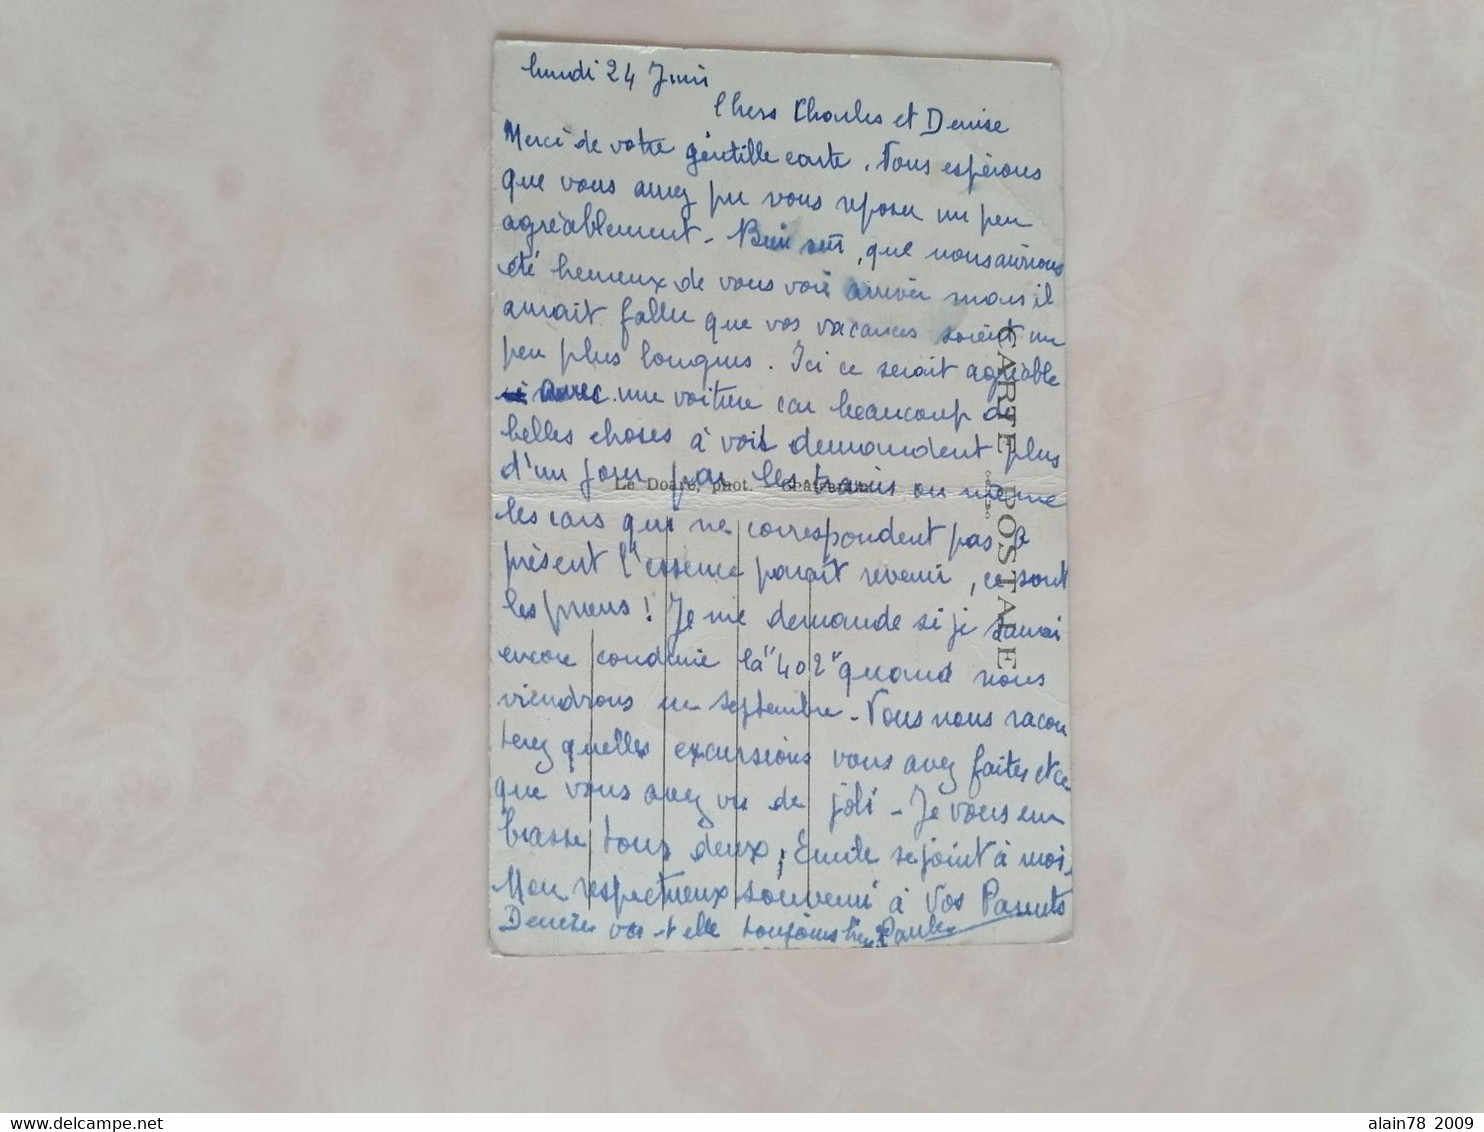 lundi 24 Juin
Chers Charles et Denise
Merci de votre gentille carte. Nous espérons
que vous avez pu vous reposer un peu
agréablement - Bien sûr, que nous aurions
été heureux de vous voir arriver mais il
aurait fallu que vos vacances soient un
peu plus longues. Ici ce serait agréable
avec une voiture car beaucoup de
belles choses à voir demandent plus
d'un jour par les trains ou même
les cars qui ne correspondent pas à
présent l'essence paraît revenir, ce sont
les pneus! Je me demande si je saurai
encore conduire la "402" quand nous
viendrons en septembre - Vous nous racon
terez quelles excursions vous avez faites et ce
que vous avez vu de joli - Je vous em
brasse tous deux, Emile se joint à moi.
Mon respectueux souvenir à vos Parents
Denise va-t-elle toujours bien? Paule
CARTE POSTALE
Le Doaré, phot. - Châteaulin
alain78 2009